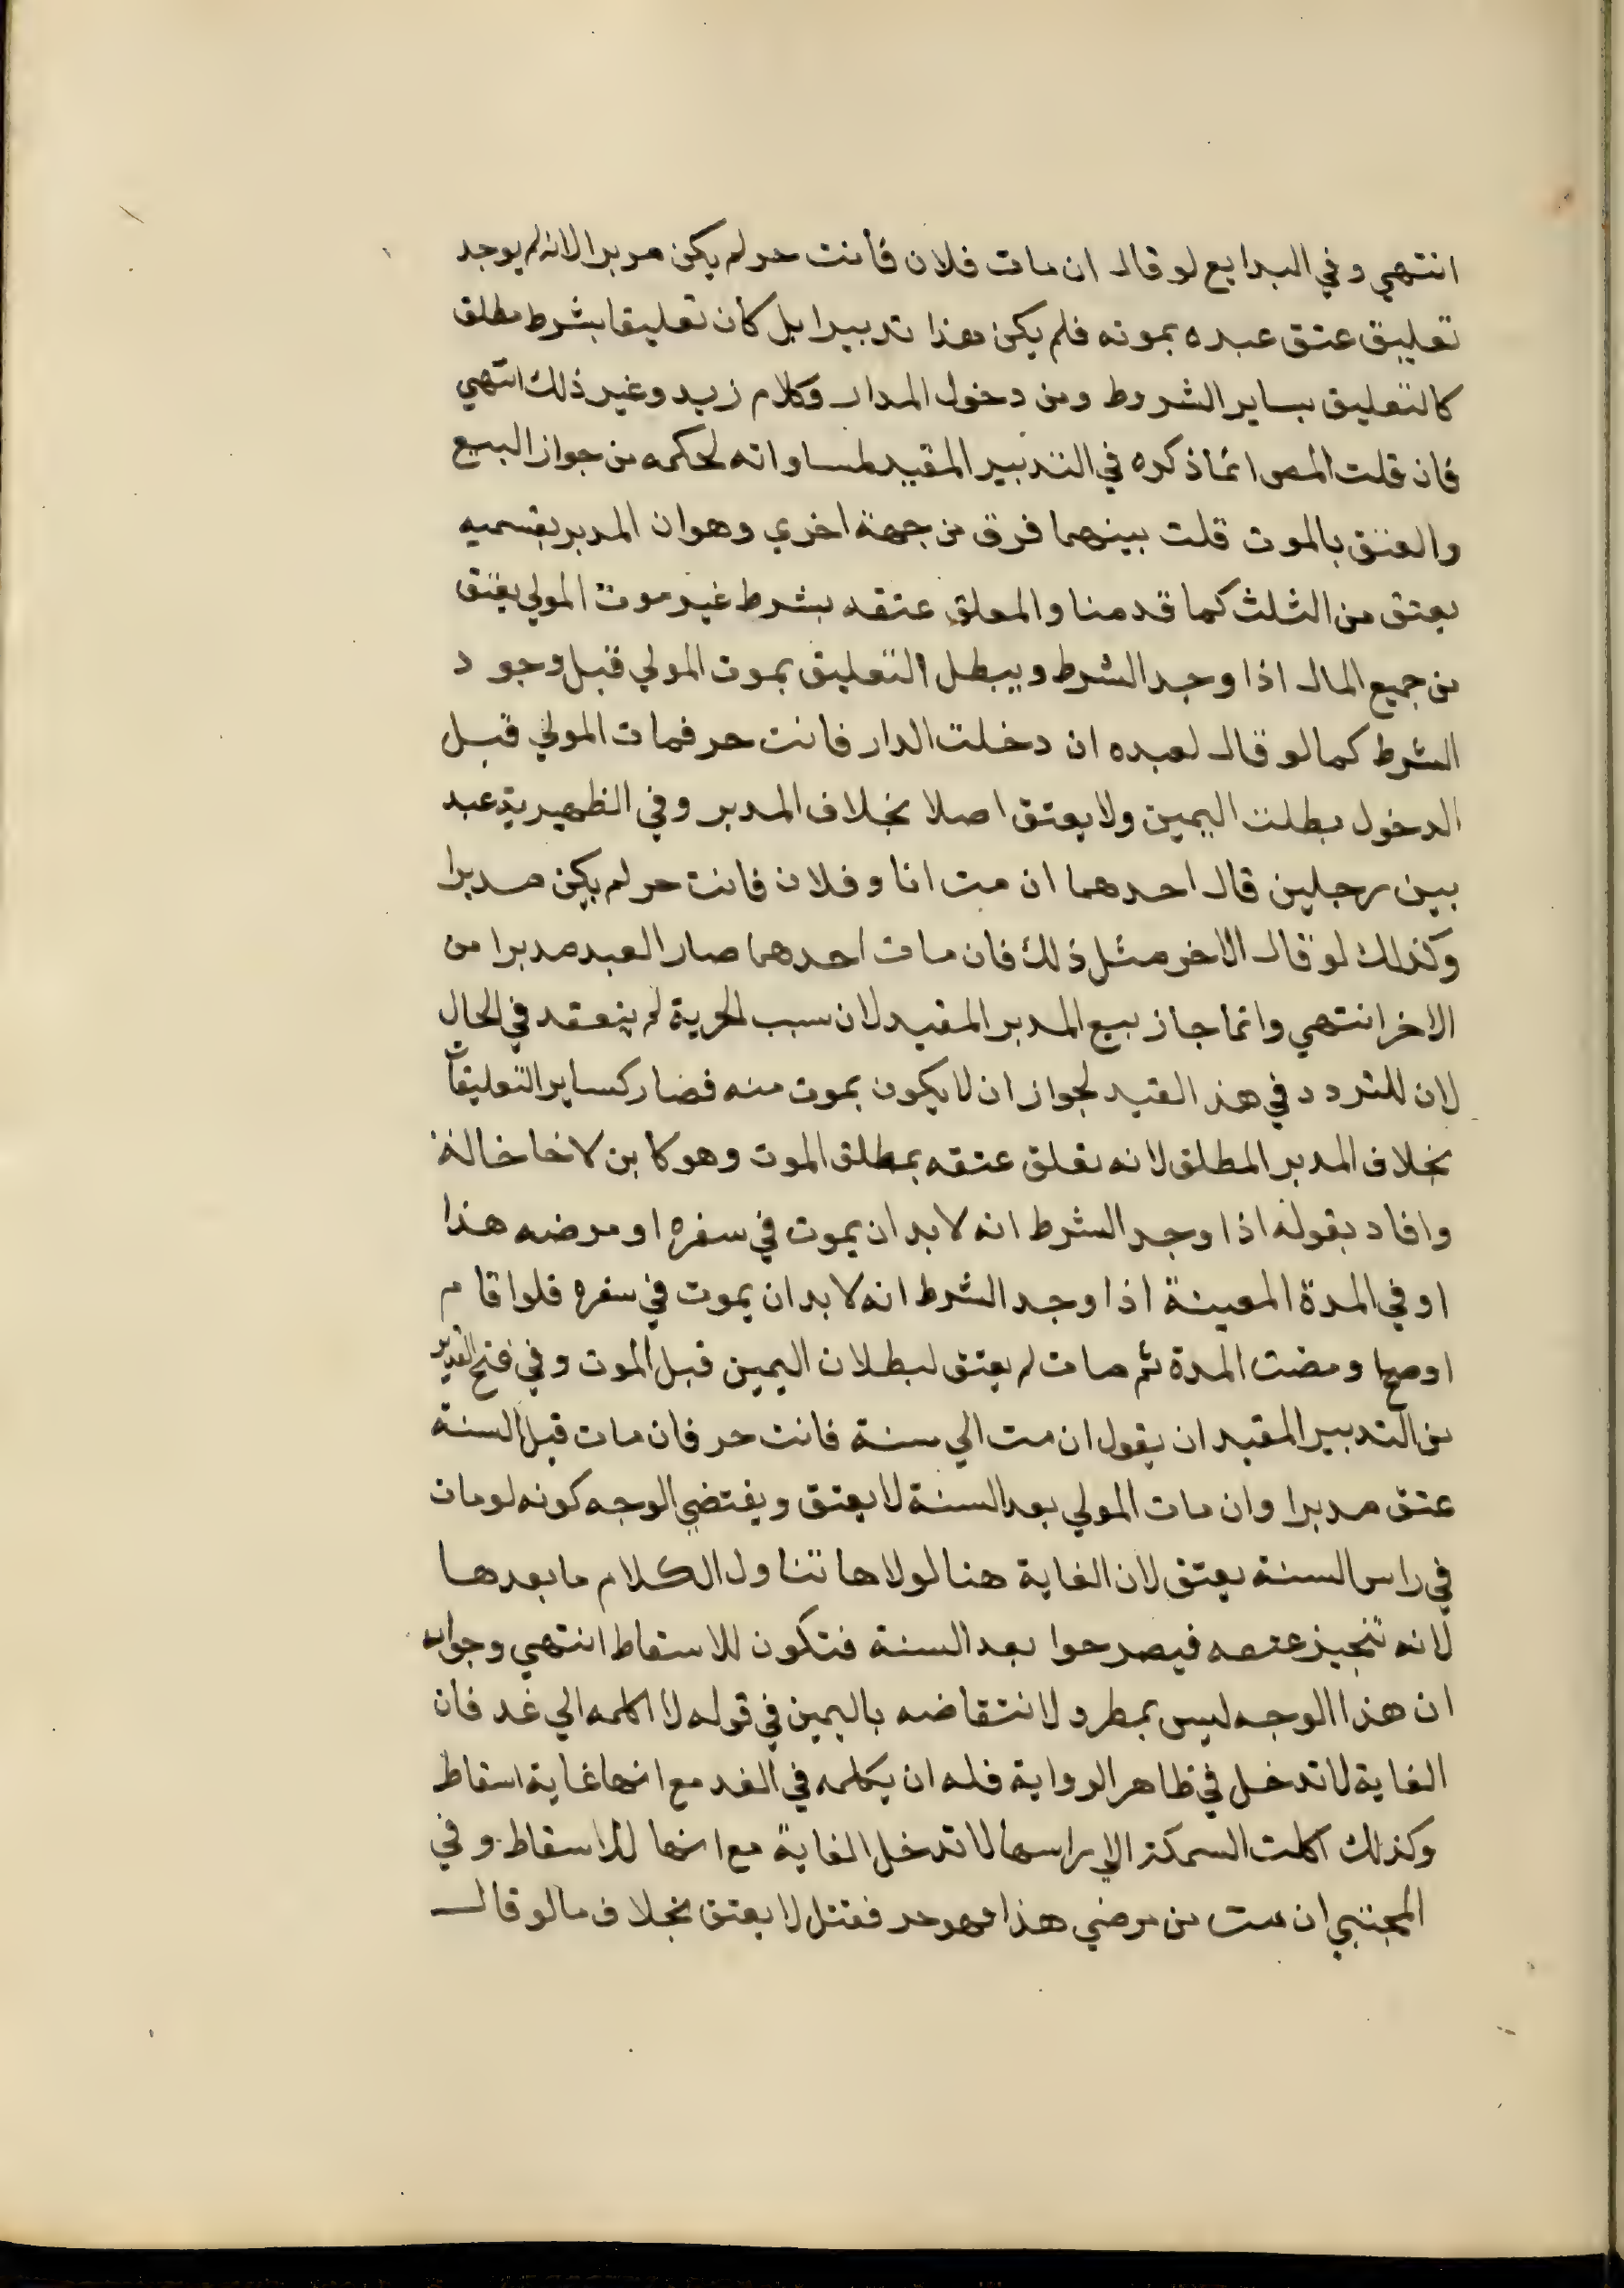 انتهي وفي البدايع لو قال ان مات فلان فأنت حر لم يكن مدبرا لانه لم يوجد
تعليق عتق عبده بموته فلم يكن هذا تدبيرا بل كان تعليقا بشرط مطلق
كالتعليق بساير الشروط ومن دخول المدار وكلام زيد وغير ذلك انتهي
فان قلت المص انما ذكره في التدبير المقيد لمساواته لحكمه من جواز البيع
والعتق بالموت قلت بينهما فرق من جهة اخري وهو ان المدبر بقسميه
يعتق من الثلث كما قدمنا والمعلق عتقه بشرط غير موت المولي يعتق
من جميع المال اذا وجد الشرط ويبطل التعليق بموت المولي قبل وجود
الشرط كما لو قال لعبده ان دخلت الدار فانت حر فمات المولي قبل
الدخول بطلت اليمين ولا يعتق اصلا بخلاف المدبر وفي الظهيرية عبد
بين رجلين قال احدهما ان مت انا وفلان فانت حر لم يكن مدبرا
وكذلك لو قال الاخر مثل ذلك فان مات احدهما صار العبد مدبرا من
الاخر انتهي وانما جاز بيع المدبر المقيد لان سبب الحرية لم ينعقد في الحال
لان للتردد في هذ القيد لجواز ان لا يكون بموت منه فصار كساير التعليقات
بخلاف المدبر المطلق لانه تعلق عتقه بمطلق الموت وهو كاين لا خا خالة
وافاد بقوله اذا وجد الشرط انه لا بد ان يموت في سفره او مرضه هذا
او في المدة المعينة اذا وجد الشرط انه لا بد ان يموت في سفره فلو اقام
او صح او مضت المدة ثم مات لم يعتق لبطلان اليمين قبل الموت وفي فتح القدير
من التدبير المقيد ان يقول ان مت الي سنة فانت حر فان مات قبل السنة
عتق مدبرا وان مات المولي بعد السنة لا يعتق ويقتضي الوجه كونه لو مات
في راس السنة يعتق لان الغاية هنا لولاها تناول الكلام ما بعدها
لانه تنجيز عتقه فيصر حوا بعد السنة فتكون للاسقاط انتهي وجوابه
ان هذا الوجه ليس بمطرد لانتقاضه باليمين في قوله لا اكلمه الي غد فان
الغاية لا تدخل في ظاهر الرواية فله ان يكلمه في الغد مع انها غاية اسقاط
وكذلك اكلت السمكة الي راسها لا تدخل الغاية مع انها للاسقاط وفي
المجتبي ان مت من مرضي هذا فهو حر فقتل لا يعتق بخلاف ما لو قال